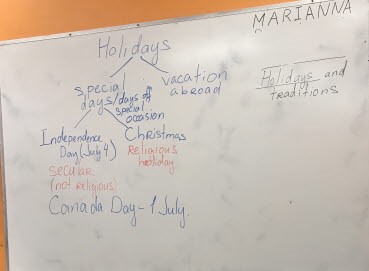 MARIANNA
Holidays
special
days/days off
special
occasion
vacation
abroad
Holidays and
traditions
Independence
Day (July 4)
secular
(not religious)
Christmas
Religious
holiday
Canada Day - 1 July.